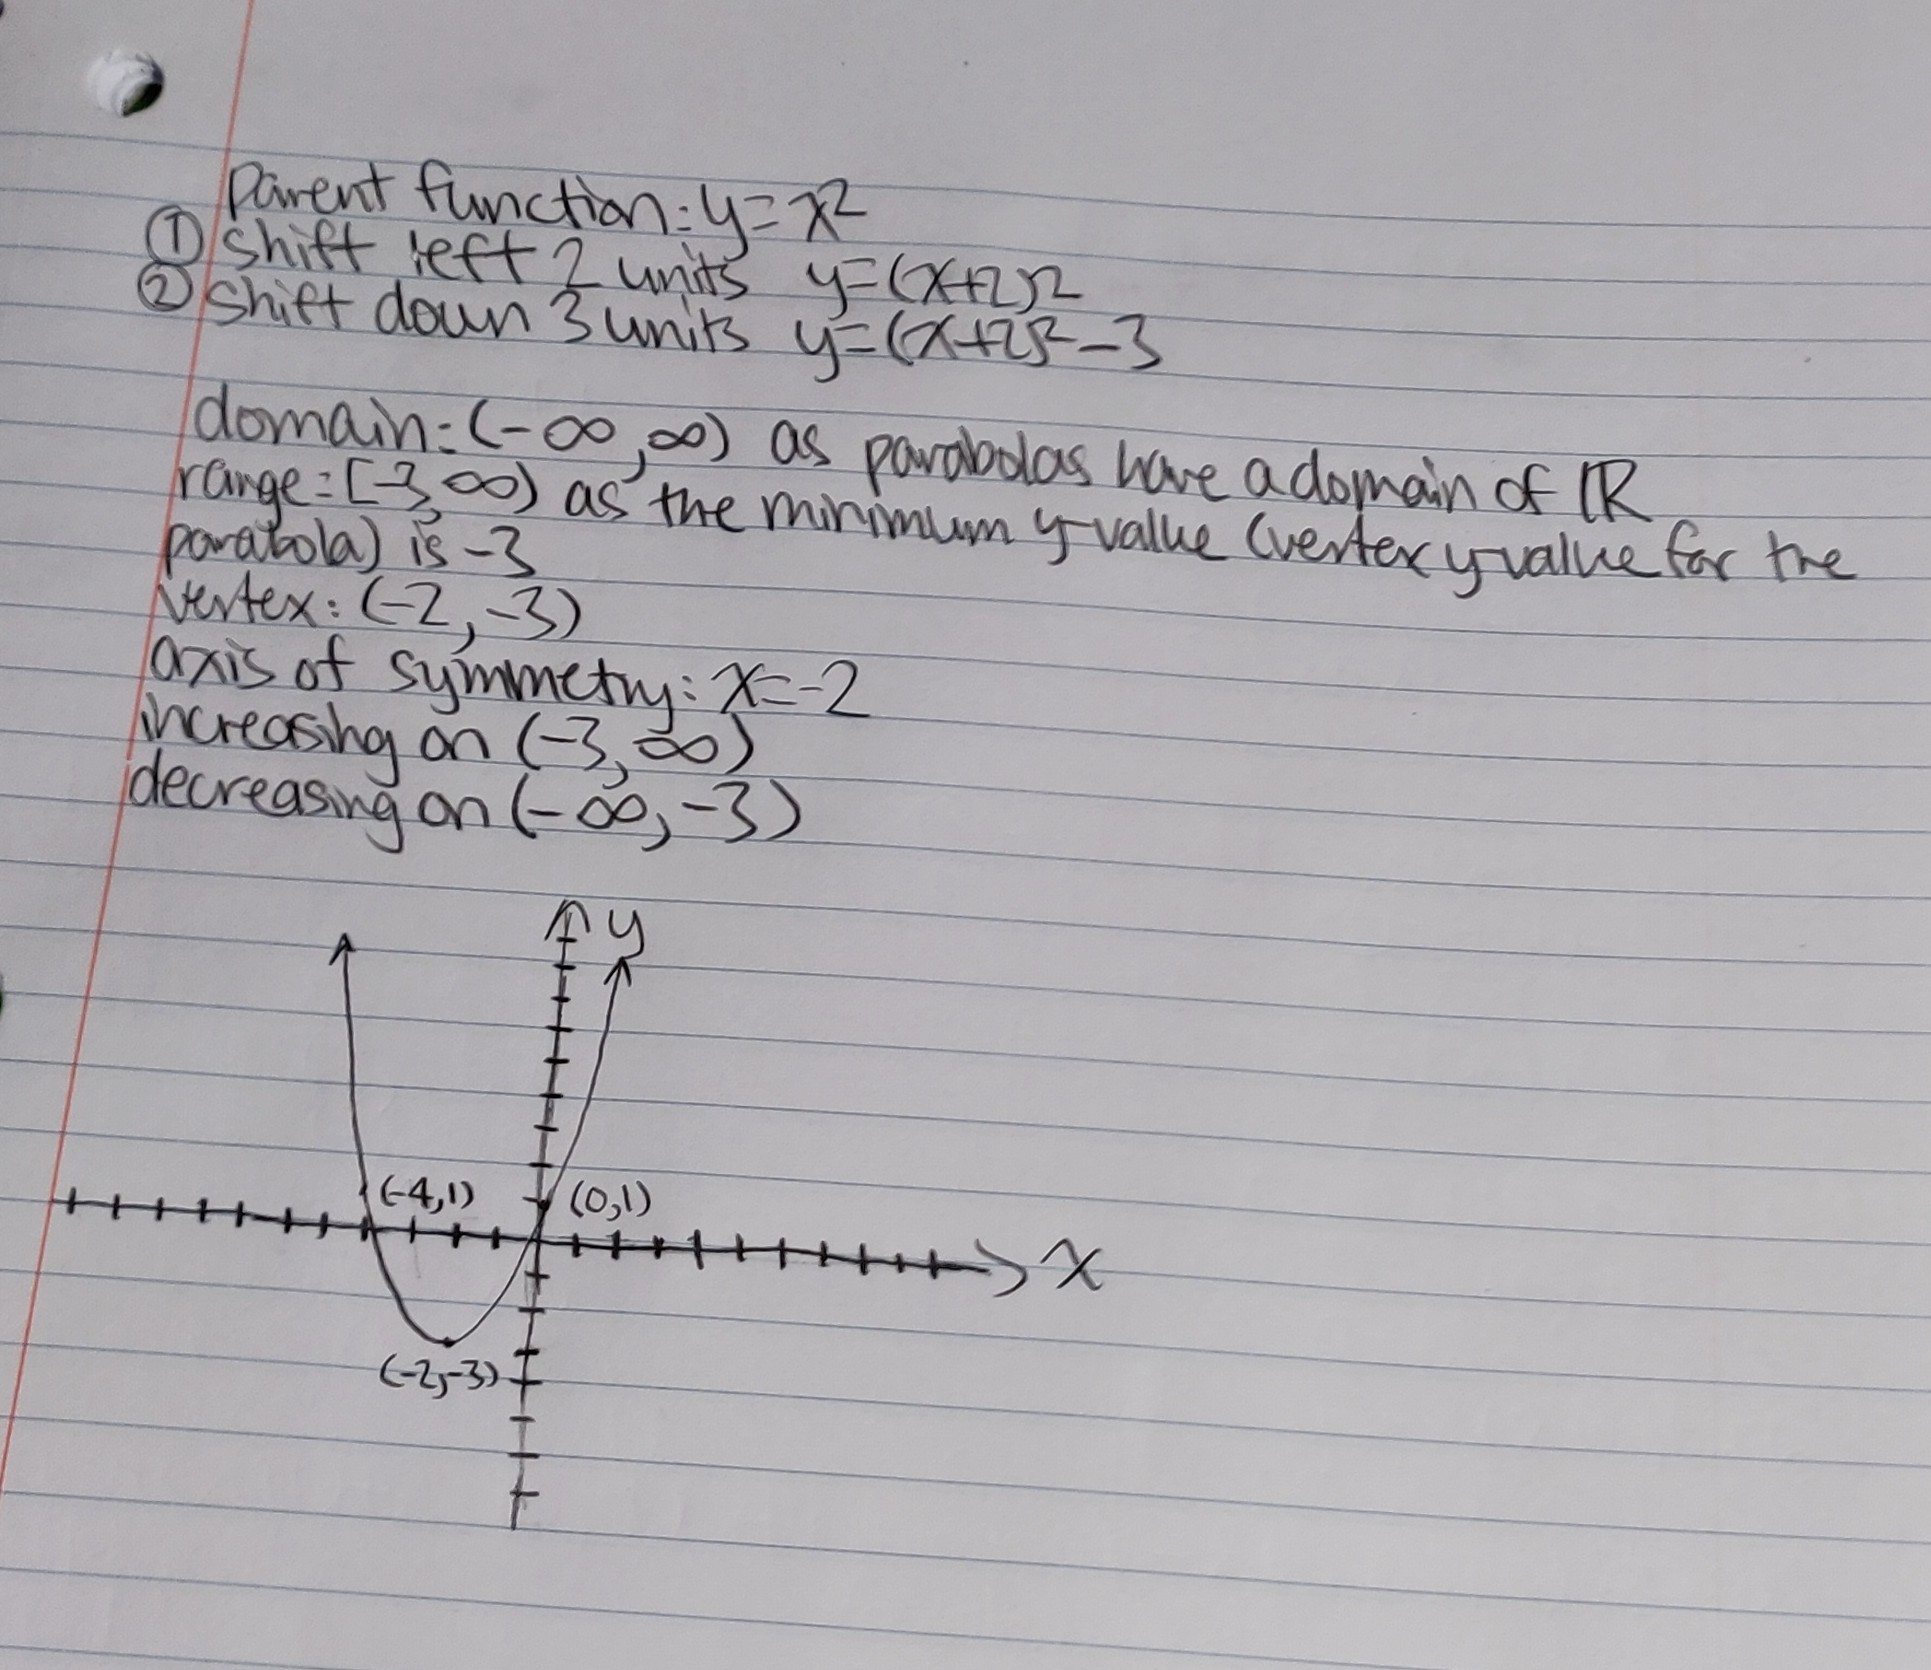 parent function: y=x²
① shift left 2 units y=(x+2)²
② shift down 3 units y=(x+2)²-3
domain: (-∞,∞) as parabolas have a domain of ℝ
range: [-3,∞) as the minimum y-value (vertex y-value for the
parabola) is -3
vertex: (-2,-3)
axis of symmetry: x=-2
increasing on (-3,∞)
decreasing on (-∞,-3)
y
(-4,1) (0,1)
x
(-2,-3)